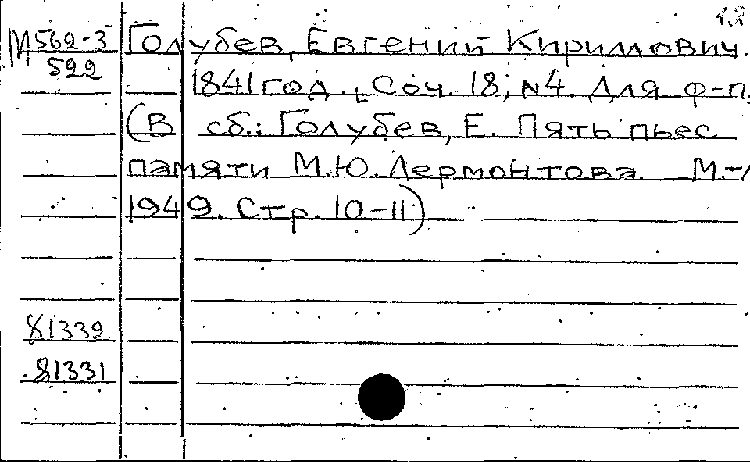 М 562-3 Голубев, Евгений Кириллович.
522
1841 год. [Соч. 18, №4. Для ф-п.
(В сб.: Голубев, Е. Пять пьес
памяти М.Ю. Лермонтова. М.-
1949. Стр. 10-11)
81332
81331